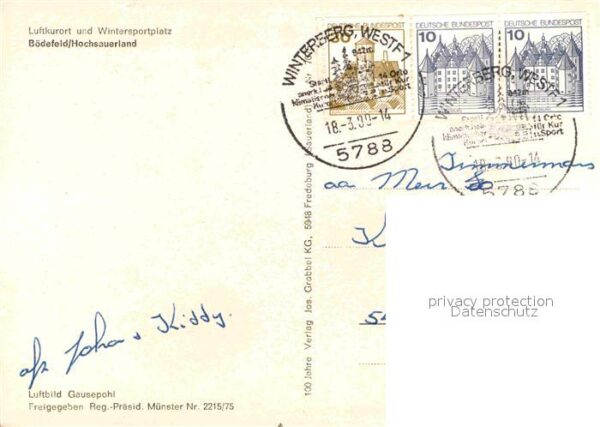 Luftkurort und Wintersportplatz
Bödefeld/Hochsauerland
afz. Johan & Kiddy.
Luftbild Gausepohl
Freigegeben Reg.-Präsid. Münster Nr. 2215/75
100 Jahre Verlag Jos. Grobbel KG, 5948 Fredeburg
30 DEUTSCHE BUNDESPOST
10 DEUTSCHE BUNDESPOST
10 DEUTSCHE BUNDESPOST
WINTERBERG, WESTF 1
Kur
Sport
18.-3.80-14
5788
WINTERBERG, WESTF 1
für Kur
Sport
18.-3.80-14
5788
Timmermans
K
privacy protection
Datenschutz